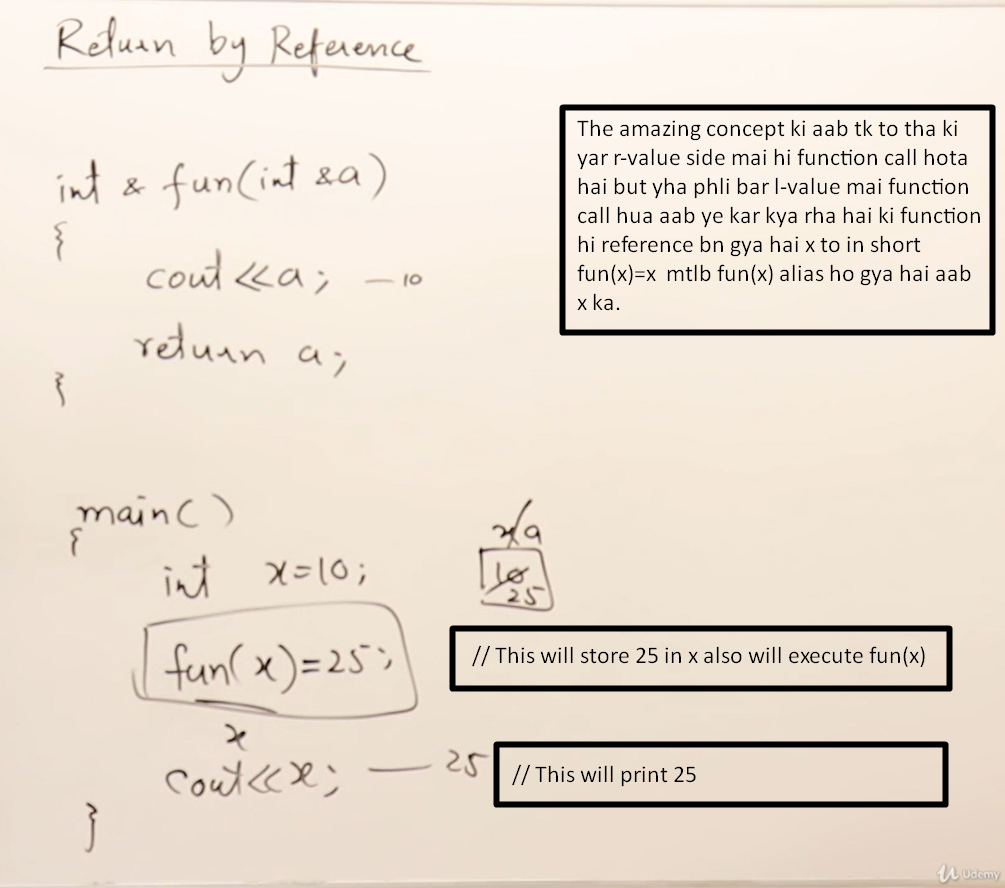 Return by Reference
The amazing concept ki aab tk to tha ki
yar r-value side mai hi function call hota
hai but yha phli bar l-value mai function
call hua aab ye kar kya rha hai ki function
hi reference bn gya hai x to in short
fun(x)=x  mtlb fun(x) alias ho gya hai aab
x ka.
int & fun(int &a)
{
cout<<a; — 10
return a;
}
main()
{
x/a
int x=10;
10
25
fun(x)=25;
// This will store 25 in x also will execute fun(x)
x
cout<<x; — 25
// This will print 25
}
Udemy